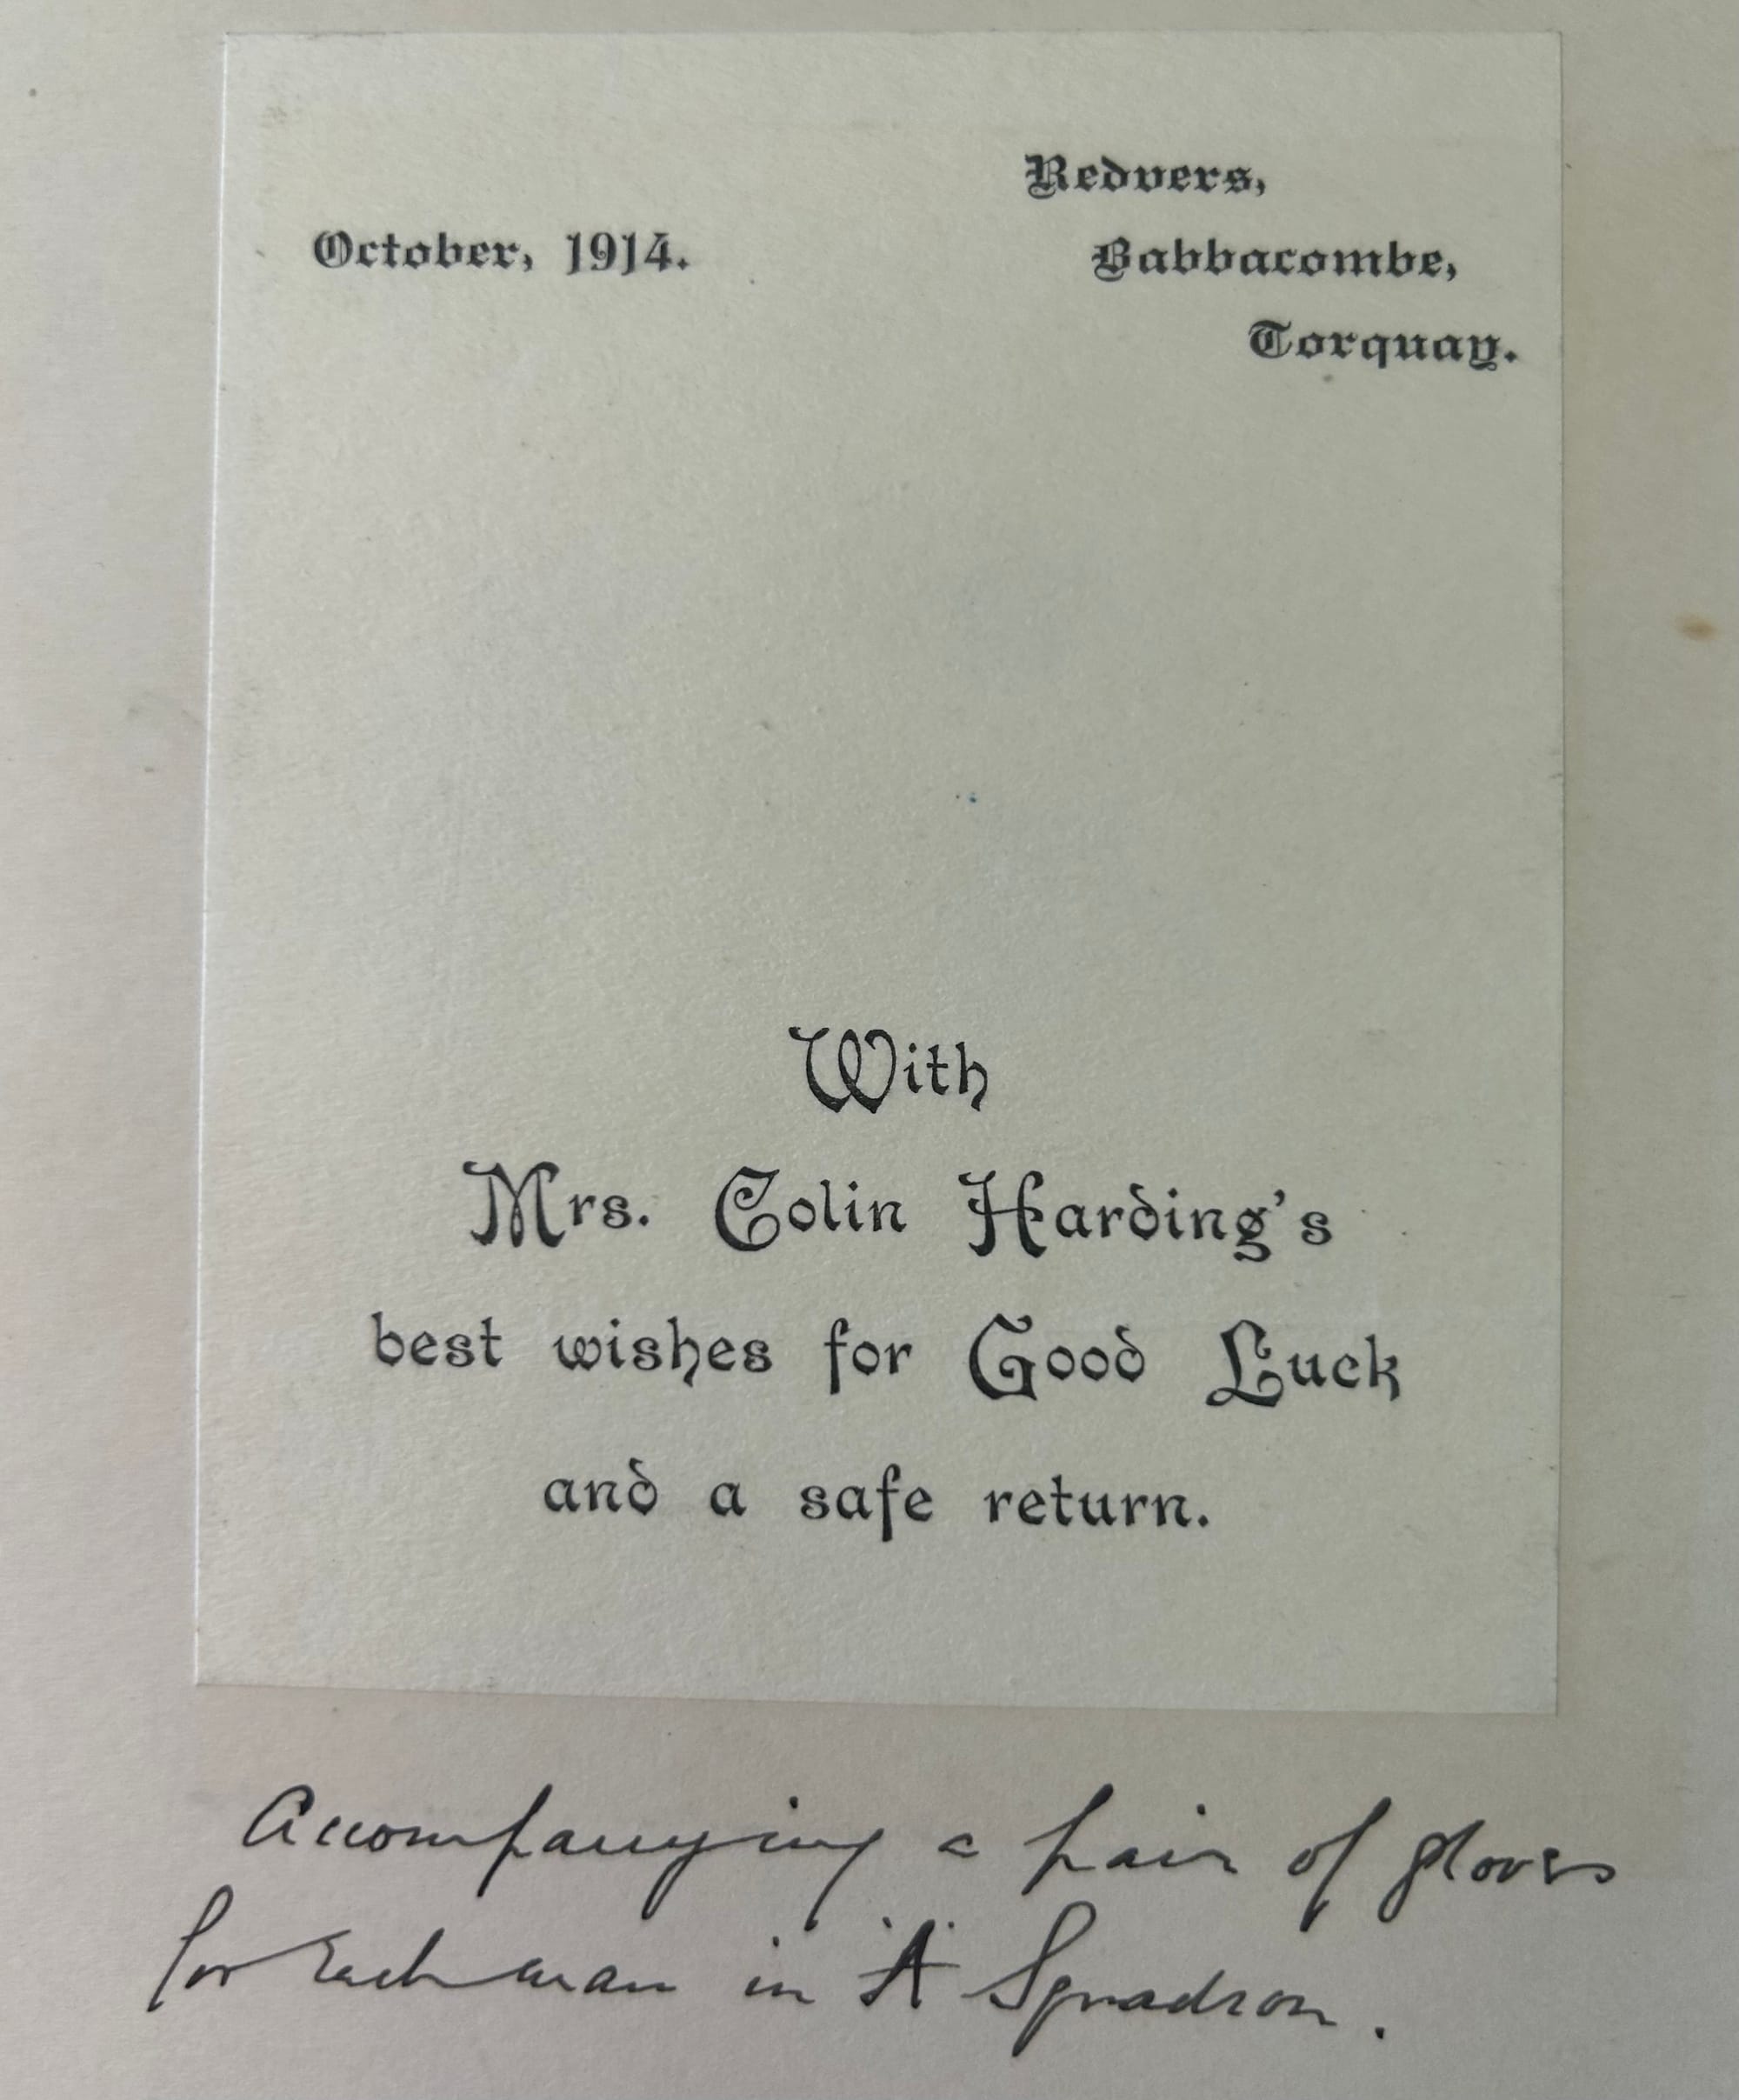 Redvers,
October, 1914.
Babbacombe,
Torquay.
With
Mrs. Colin Harding's
best wishes for Good Luck
and a safe return.
Accompanying a pair of gloves
for each man in "A" Squadron.